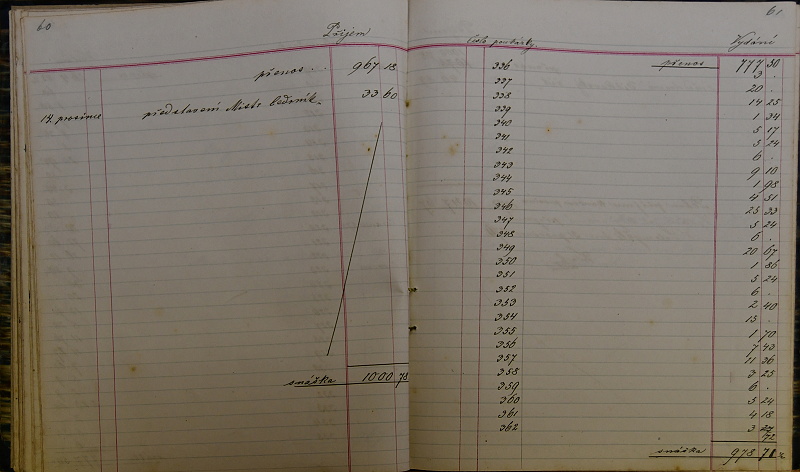 60
Příjem
přenos . . 967 18
14. prosince představení Mistr bednář. 33 60
snáška 1000 78
61
číslo poukázky. Vydání
336 přenos 777 50
337 3 .
338 20 .
339 14 25
340 1 34
341 5 17
342 5 24
343 6 .
344 9 10
345 1 95
346 4 51
347 25 33
348 5 24
349 6 .
350 20 67
351 1 86
352 5 24
353 6 .
354 2 40
355 15 .
356 1 70
357 7 43
358 11 36
359 3 25
360 6 .
361 5 24
362 4 18
3 27
72
snáška 978 71